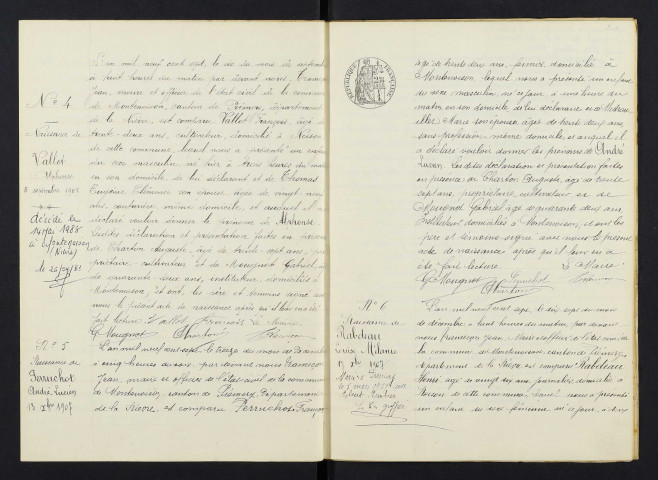 L'an mil neuf cent sept, le dix du mois de septembre
à huit heures du matin par devant nous,
Jean, maire et officier de l'état civil de la commune
de Montenoison, canton de Prémery, département
de la Nièvre, est comparu Vallot François, âgé de
trente-deux ans, cultivateur, domicilié à Noison
de cette commune, lequel nous a présenté un enfant
du sexe masculin né hier à trois heures du
en son domicile de lui déclarant et de Thomas
Eugénie son épouse, âgée de vingt neuf
ans, couturière même domicile, et auquel il a
déclaré vouloir donner le prénom de Alphonse
Lesdites déclaration et présentation faites en présence
de Charton Auguste, âgé de trente-sept ans, pro-
priétaire cultivateur et de Mougnot Gabriel, âgé
de quarante deux ans, instituteur, domiciliés à
Montenoison, et ont, les père et témoins signé avec
nous le présent acte de naissance après
fait lecture. Vallot François Le Maire,
G. Mougnot Charton
N° 4
Naissance de
Vallot
Alphonse
septembre 1907
décédé le
14 mai 1988
à
(Nièvre)
le
N° 5
Naissance de
Perruchot
André Lucien
13 Xbre 1907
L'an mil neuf cent sept, le treize du mois de Décembre
à cinq heures du soir, par devant nous
Jean, maire et officier de l'état civil de la commune
de Montenoison, canton de Prémery, Département
de la Nièvre, est comparu Perruchot François
RÉPUBLIQUE FRANÇAISE
âgé de trente deux ans, domicilié à
Montenoison lequel nous a présenté un enfant
du sexe masculin, né ce jour, à une heure du
matin en son domicile de lui déclarant et de
Marie son épouse âgée de trente deux ans,
sans profession, même domicile, et auquel il
a déclaré vouloir donner les prénoms de André
Lucien. Lesdites déclaration et présentation faites
en présence de Charton Auguste, âgé de trente
sept ans, propriétaire cultivateur et de
Mougnot Gabriel âgé de quarante deux ans
Instituteur domiciliés à Montenoison, et ont les
père et témoins signé avec nous le présent
acte de naissance après qu'il leur en a
été fait lecture. Le Maire
G. Mougnot Perruchot
Charton
N° 6
Naissance de
Rabdeau
Mélanie
17 Xbre 1907
L'an mil neuf cent sept, le dix sept du mois
de décembre à huit heures du matin, par devant
nous Jean, Maire officier de l'état civil de
la commune de Montenoison, canton de Prémery,
département de la Nièvre est comparu Rabdeau
Henri âgé de vingt six ans, journalier, domicilié à
Noison de cette commune, lequel nous a présenté
un enfant du sexe féminin né ce jour, à deux